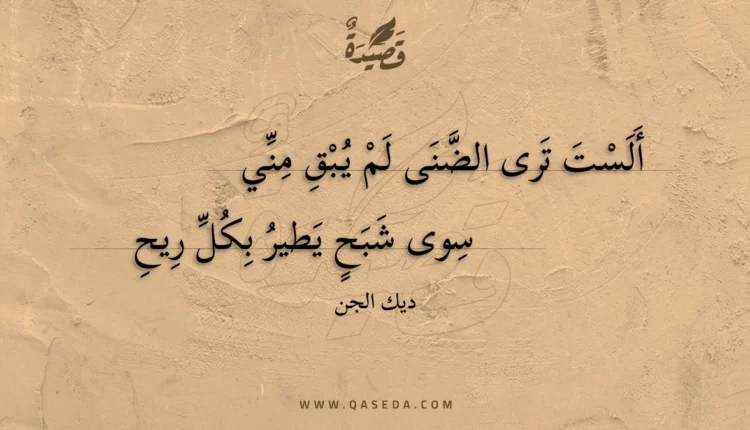 قَصِيدَةٌ
أَلَسْتَ تَرى الضَّنَى لَمْ يُبْقِ مِنِّي
سِوى شَبَحٍ يَطيرُ بِكُلِّ رِيحِ
ديك الجن
WWW.QASEDA.COM